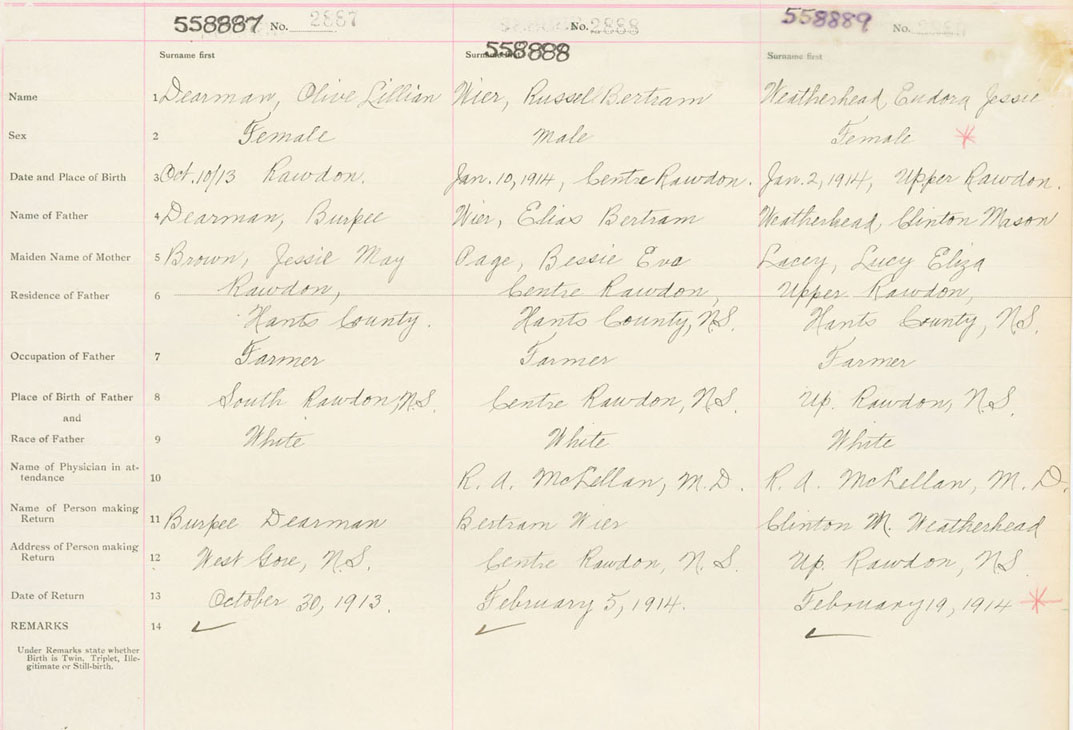 558887 No. 2887 No. 2888 558889 No.
558888
Surname first Surname first
Name 1 Dearman, Olive Lillian Wier, Russel Bertram Weatherhead Eudora Jessie
Sex 2 Female Male Female
Date and Place of Birth 3 Oct. 10/13 Rawdon. Jan. 10, 1914, Centre Rawdon. Jan. 2, 1914, Upper Rawdon.
Name of Father 4 Dearman, Burpee Wier, Elias Bertram Weatherhead, Clinton Mason
Maiden Name of Mother 5 Brown, Jessie May Page, Bessie Eva Lacey, Lucy Eliza
Residence of Father 6 Rawdon, Centre Rawdon, Upper Rawdon,
Hants County. Hants County, N.S. Hants County, N.S.
Occupation of Father 7 Farmer Farmer Farmer
Place of Birth of Father 8 South Rawdon, N.S. Centre Rawdon, N.S. Up. Rawdon, N.S.
and
Race of Father 9 White White White
Name of Physician in at-
tendance 10 R. A. McLellan, M.D. R. A. McLellan, M.D.
Name of Person making
Return 11 Burpee Dearman Bertram Wier Clinton M. Weatherhead
Address of Person making
Return 12 West Gore, N.S. Centre Rawdon, N.S. Up. Rawdon, N.S.
Date of Return 13 October 30, 1913. February 5, 1914. February 19, 1914
REMARKS 14
Under Remarks state whether
Birth is Twin, Triplet, Ille-
gitimate or Still-birth.